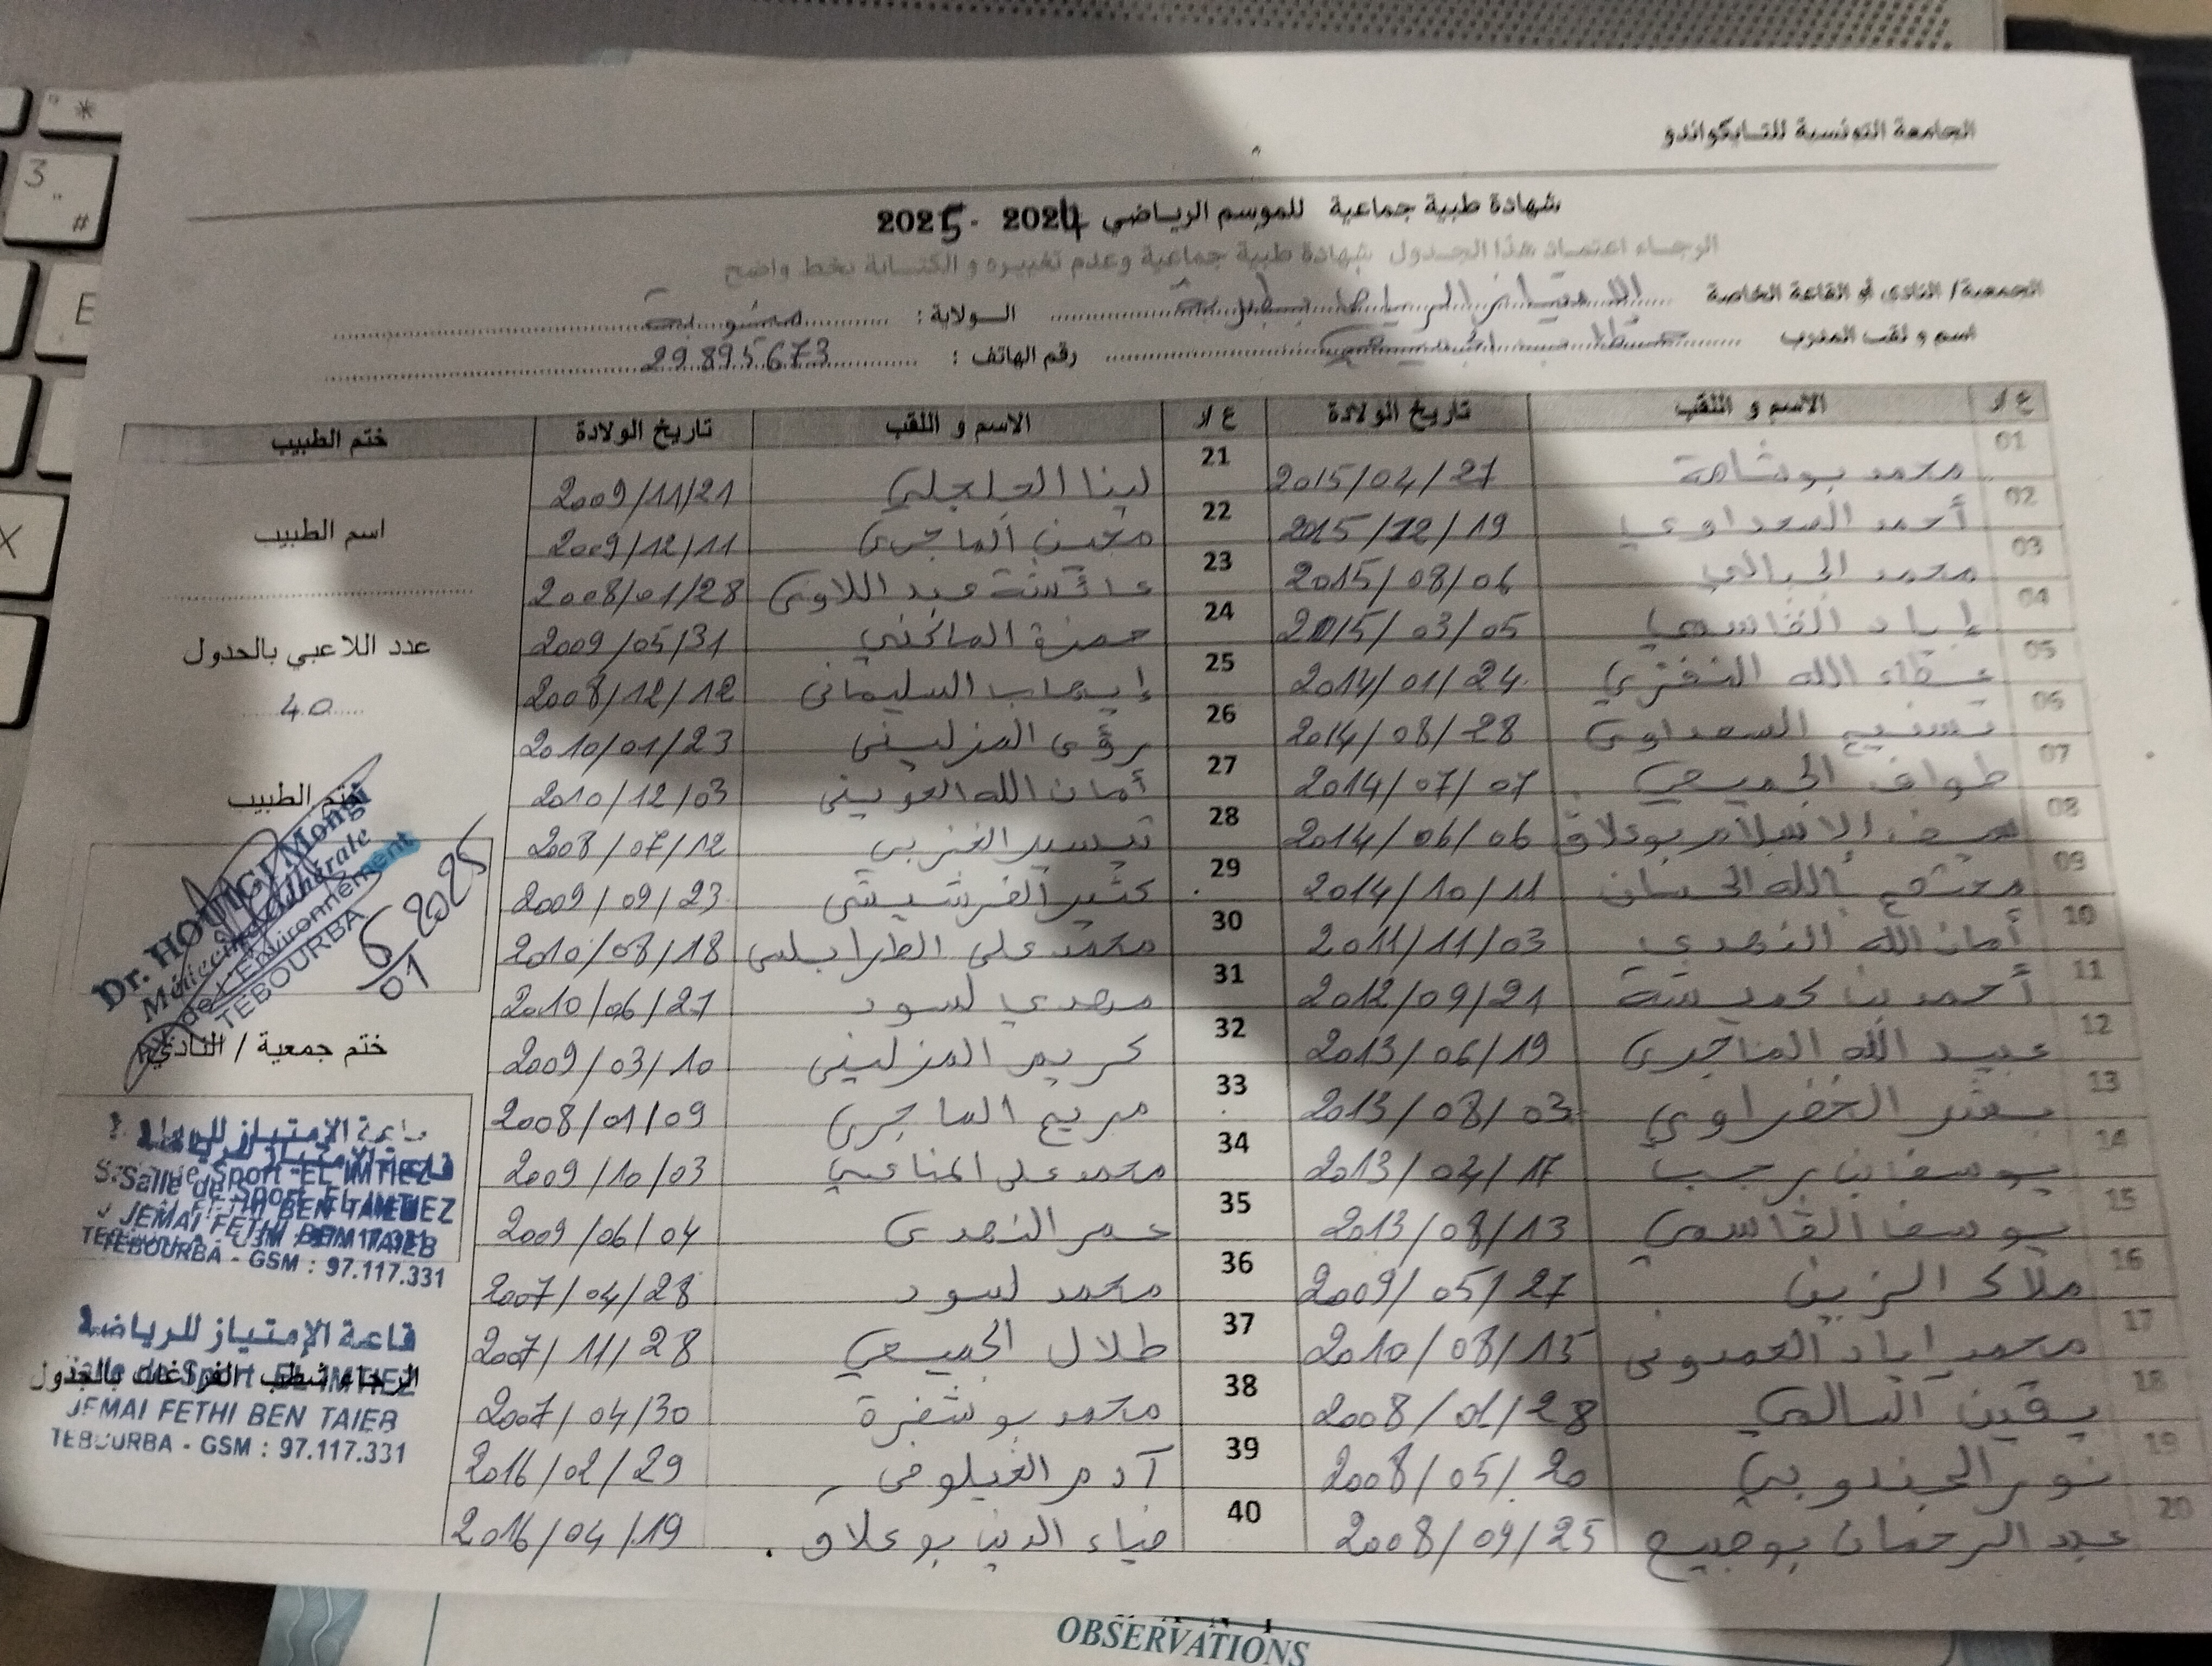 الجامعة التونسية للتايكواندو
شهادة طبية جماعية للموسم الرياضي 2024 - 2025
الرجاء اعتماد هذا الجدول شهادة طبية جماعية وعدم تغييره و الكتابة بخط واضح
الجمعية/ النادي أو القاعة الخاصة الامتياز الرياضي بطبربة الولاية : منوبة
اسم و لقب المدرب رقم الهاتف : 29.895.673
ع/د الاسم و اللقب تاريخ الولادة ع/د الاسم و اللقب تاريخ الولادة ختم الطبيب
01 محمد بوشامة 2015/04/27 21 لينا الجلجلي 2009/11/21
02 أحمد السعداوي 2015/12/19 22 الماجري 2009/12/11
03 محمد الجبالي 2015/08/06 23 عائشة عبد اللاوي 2008/01/28
04 إياد القاسمي 2015/03/05 24 حمزة 2009/05/31
05 عطاء الله النفزي 2014/01/24 25 إيهاب السليماني 2008/12/12
06 تسنيم السعداوي 2014/08/28 26 رؤى المزليني 2010/01/23
07 طواف الجميعي 2014/07/07 27 أمان الله العويني 2010/12/03
08 سيف الإسلام بوعلاق 2014/06/06 28 تيسير الغربي 2008/07/12
09 الله 2014/10/11 29 الفرشيشي 2009/09/23
10 أمان الله النهدي 2011/11/03 30 محمد علي الطرابلسي 2010/08/18
11 أحمد بن 2012/09/21 31 مهدي لسود 2010/06/27
12 عبيد الله الماجري 2013/06/19 32 كريم المزليني 2009/03/10
13 الخضراوي 2013/08/03 33 مريم الماجري 2008/01/09
14 يوسف بن رجب 2013/04/17 34 محمد علي المناعي 2009/10/03
15 يوسف القاسمي 2013/08/13 35 عمر النهدي 2009/06/04
16 ملاك الزين 2009/05/27 36 محمد لسود 2007/04/28
17 محمد اياد العمدوني 2010/08/15 37 طلال الجميعي 2007/11/28
18 يقين السالمي 2008/01/28 38 محمد بوشفرة 2007/04/30
19 نور الجندوبي 2008/05/20 39 آدم الغيلوفي 2016/02/29
20 عبد الرحمان 2008/09/25 40 ضياء الدين بوعلاق 2016/04/19
اسم الطبيب
عدد اللاعبي بالجدول
40
ختم الطبيب
Dr. HOUIGI Mongi
Médecine Générale
Av. de L'Environnement
TEBOURBA
6/01 2025
ختم جمعية / النادي
قاعة الإمتياز للرياضة
Salle de Sport EL IMTIEZ
JEMAI FETHI BEN TAIEB
TEBOURBA - GSM : 97.117.331
قاعة الإمتياز للرياضة
Salle de Sport EL IMTIEZ
الرجاء شطب الفراغات بالجدول
JEMAI FETHI BEN TAIEB
TEBOURBA - GSM : 97.117.331
OBSERVATIONS